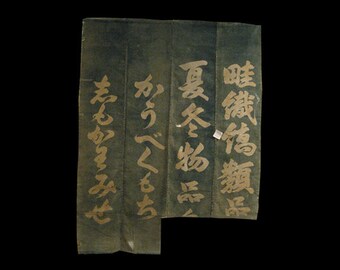 畦織縞類品
夏冬物品
かうべくもち
志もかわみせ